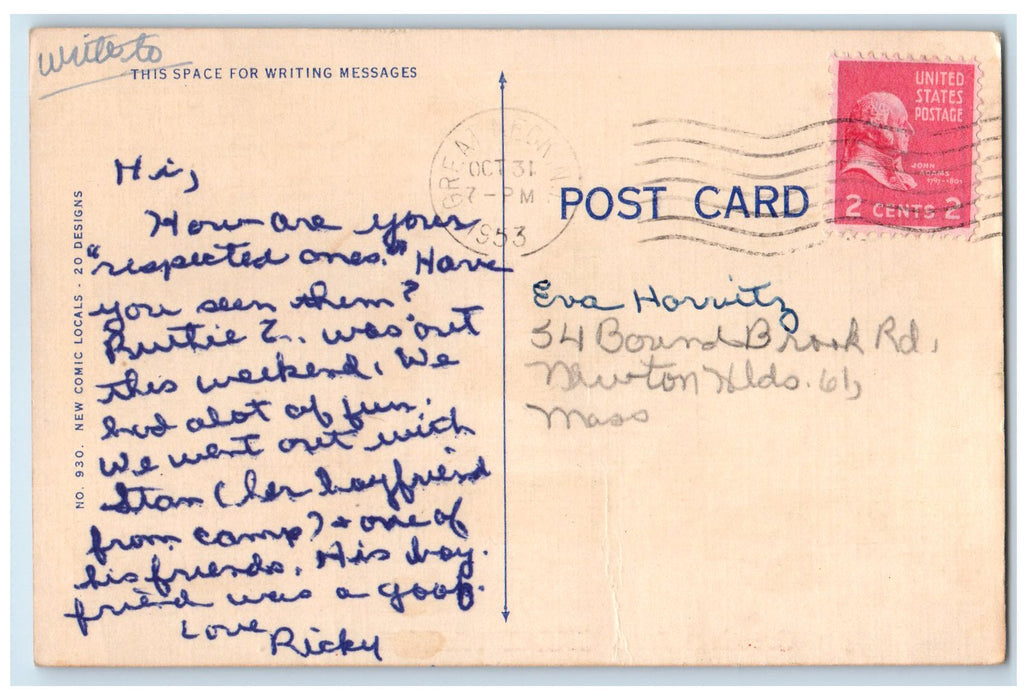 write to
THIS SPACE FOR WRITING MESSAGES
Hi,
How are your
"respected ones." Have
you seen them?
Ruthie Z.. was out
this weekend. We
had alot of fun.
We went out with
Stan (her boyfriend
from camp) + one of
his friends. His boy.
friend was a goop.
Love
Ricky
NO. 930. NEW COMIC LOCALS - 20 DESIGNS
GREAT NECK
OCT 31
7 - PM
1953
POST CARD
UNITED
STATES
POSTAGE
JOHN
ADAMS
1797-1801
2 CENTS 2
Eva Horvitz
54 Bound Brook Rd,
Newton Hlds. 61,
Mass